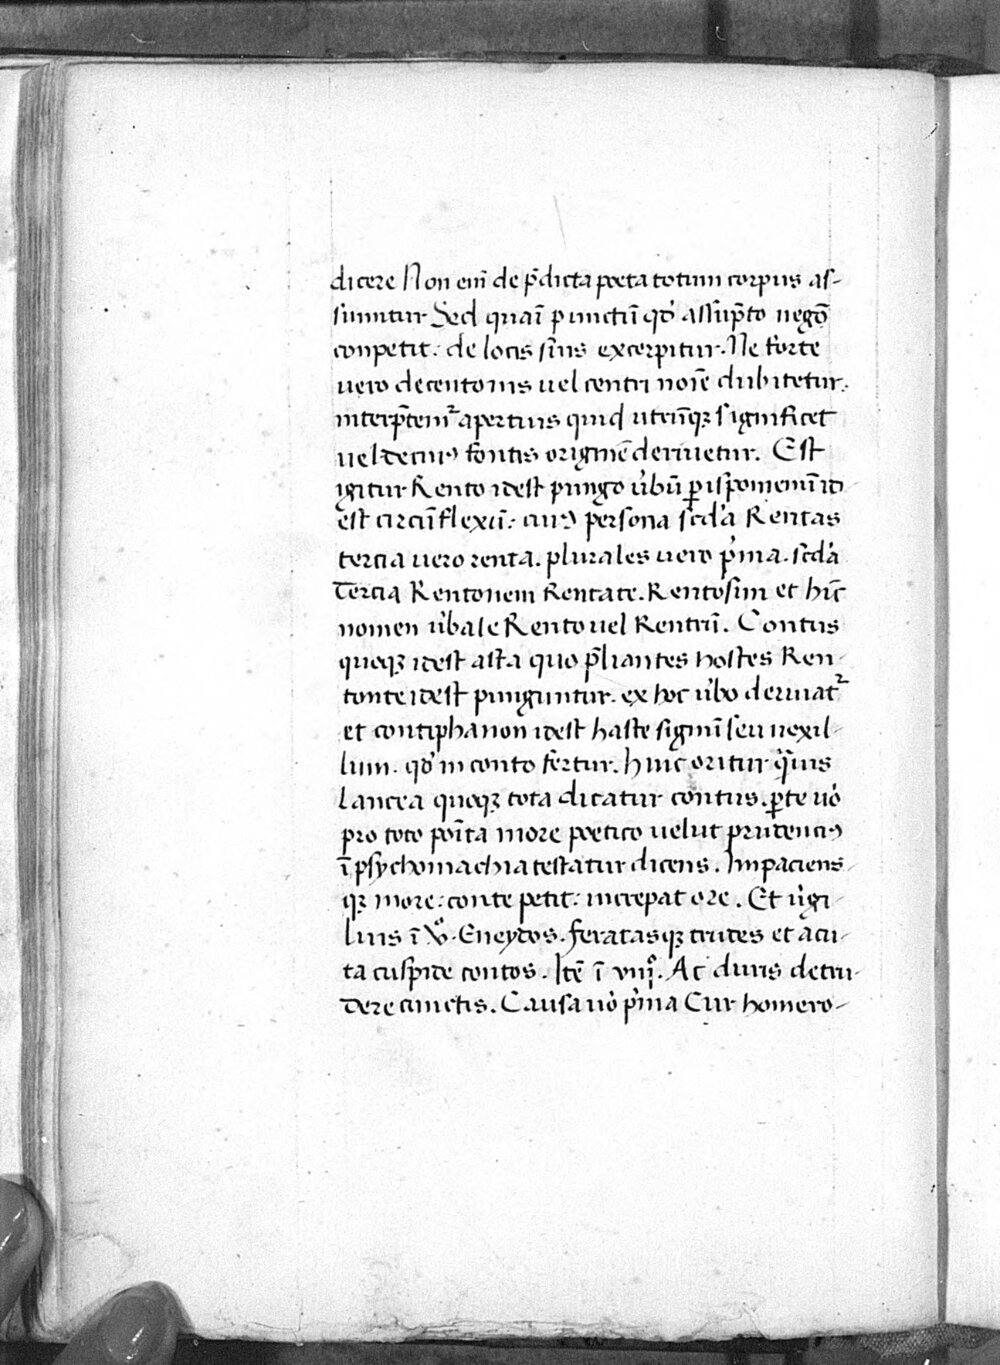 dicere Non em̄ de p̄dicta poeta totum corpus as-
sumitur Sed quam̄ punctū qd' assūpto nego͞
conpetit: de locis sin̄s excerpitur. Ne forte
uero decentonis uel centri noīe dubitetur.
interp̄temʳ apertius quid utrūqꝫ significet
uel de cuiꝰ fontis origine͞ deriuetur. Est
igitur Rento idest pungo u̇bū ꝑispomenū id
est circūflexū: cuiꝰ persona scd'a Rentas
tercia uero renta. plurales uero p̓ma. scd'a
Tercia Rentonem Rentate. Rentosim et hīc
nomen u̇bale Rento uel Rentrū. Contus
quoqꝫ idest asta quo p̄liantes hostes Ren-
tonte idest punguntur. ex hoc u̇bo deriuatʳ
et contiphanon idest haste signū seu uexil-
lum. qd' in conto fertur. hinc oritur qͣuis
Lancea quoqꝫ tota dicatur contus. ꝑte uo̓
pro toto poīta more poetico uelut prudenciꝰ
ī psychomachia testatur dicens. Impaciens-
qꝫ more: conte petit: increpat ore. Et u̓gi-
lius ī vͦ. Eneydos. feratasqꝫ trudes et acu-
ta cuspide contos. Itē ī viiijͦ. Ac duris detru-
dere cunctis. Causa uo̓ p̓ma Cur homero-